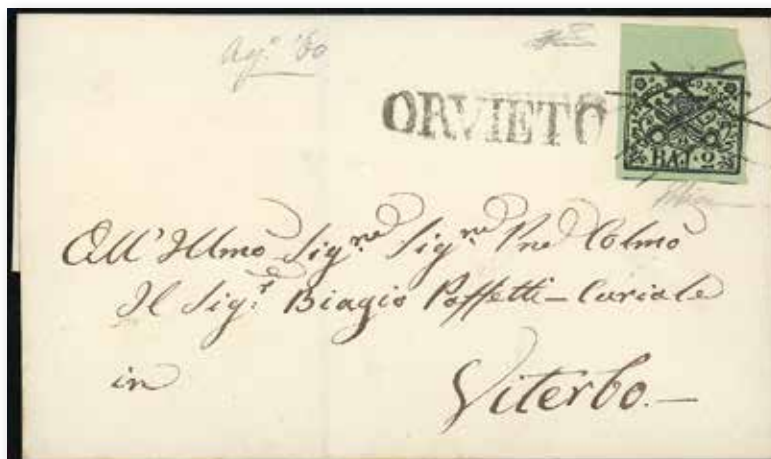 Ag.º '60
ORVIETO
FRANCO BOLLO POSTALE
BAJ. 2
All' Illmo Sig.re Sig.re Pne Colmo
Il Sig.r Biagio Poffetti - Curiale
in
Viterbo. -